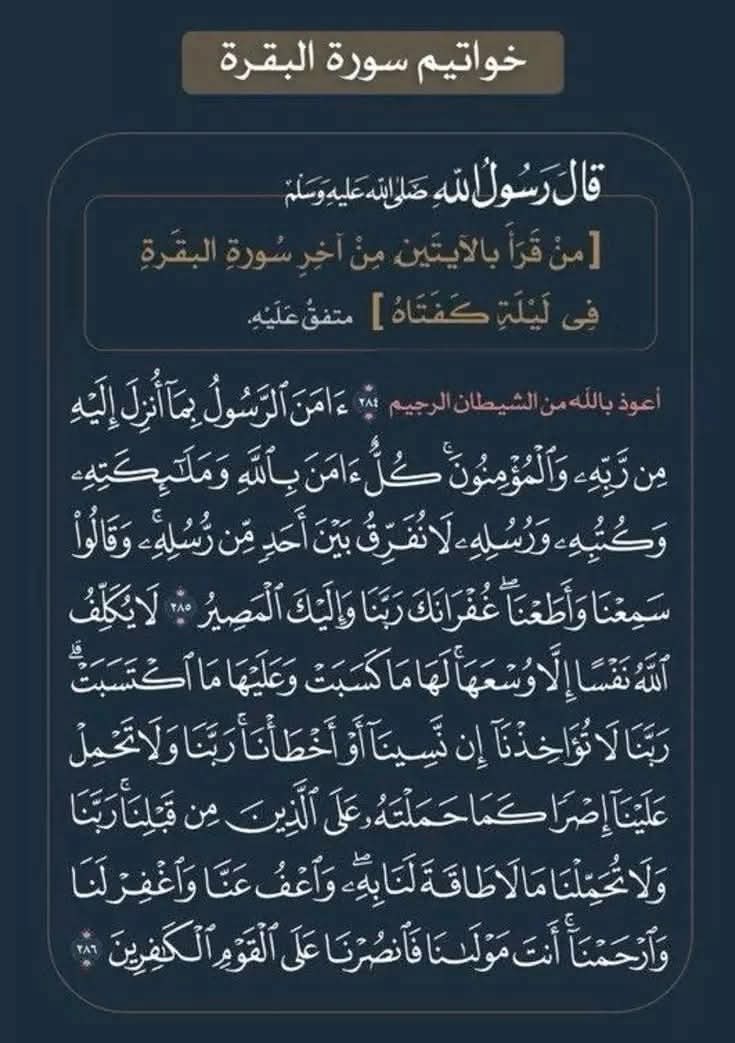 خواتيم سورة البقرة
قَالَ رَسُولُ اللّٰهِ صَلَّى اللّٰه عَلَيْهِ وَسَلَّمْ
[ منْ قَرَأَ بالآيتَينِ مِنْ آخِرِ سُورةِ البقَرةِ
فِي لَيْلَةٍ كَفَتَاهُ ] متفقٌ عَلَيْهِ.
أعوذ بالله من الشيطان الرجيم ٢٨٤ ءَامَنَ ٱلرَّسُولُ بِمَآ أُنزِلَ إِلَيْهِ
مِن رَّبِّهِۦ وَٱلْمُؤْمِنُونَۚ كُلٌّ ءَامَنَ بِٱللَّهِ وَمَلَـٰٓئِكَتِهِۦ
وَكُتُبِهِۦ وَرُسُلِهِۦ لَا نُفَرِّقُ بَيْنَ أَحَدٍ مِّن رُّسُلِهِۦۚ وَقَالُوا۟
سَمِعْنَا وَأَطَعْنَاۖ غُفْرَانَكَ رَبَّنَا وَإِلَيْكَ ٱلْمَصِيرُ ٢٨٥ لَا يُكَلِّفُ
ٱللَّهُ نَفْسًا إِلَّا وُسْعَهَاۚ لَهَا مَا كَسَبَتْ وَعَلَيْهَا مَا ٱكْتَسَبَتْۗ
رَبَّنَا لَا تُؤَاخِذْنَآ إِن نَّسِينَآ أَوْ أَخْطَأْنَاۚ رَبَّنَا وَلَا تَحْمِلْ
عَلَيْنَآ إِصْرًا كَمَا حَمَلْتَهُۥ عَلَى ٱلَّذِينَ مِن قَبْلِنَاۚ رَبَّنَا
وَلَا تُحَمِّلْنَا مَا لَا طَاقَةَ لَنَا بِهِۦۖ وَٱعْفُ عَنَّا وَٱغْفِرْ لَنَا
وَٱرْحَمْنَآۚ أَنتَ مَوْلَىٰنَا فَٱنصُرْنَا عَلَى ٱلْقَوْمِ ٱلْكَـٰفِرِينَ ٢٨٦